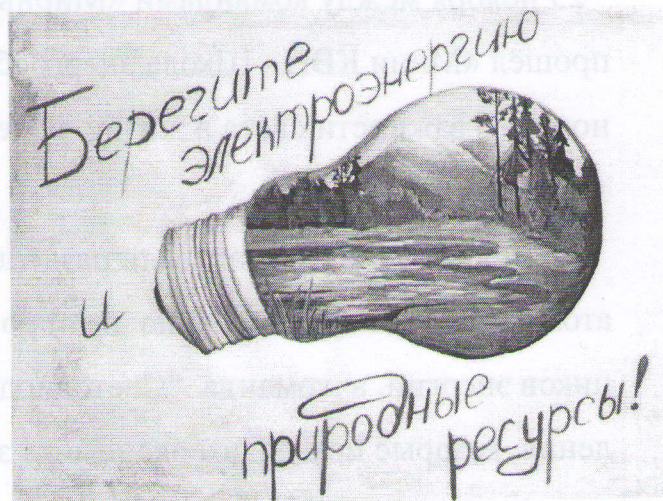 Берегите
электроэнергию
и
природные
ресурсы!